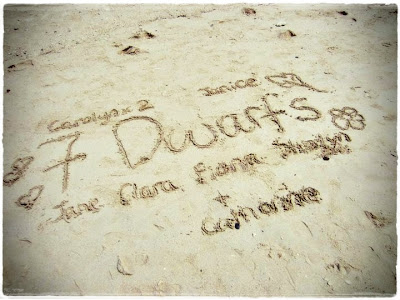 Carolyn x 2 Janice
7 Dwarfs
Jane Clara Fiona
+
Catherine